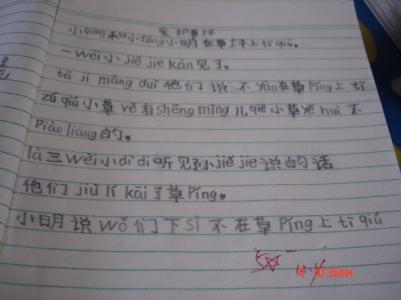 爱护草坪
小qiáng和小fāng小明在草坪上tī qiú。
一wèi小jiě jie kàn见了。
tā jí máng duì他们说 不yào在草Píng上tī
zú qiú小草yě有shēng mìng儿qiě小草yě huì不
Piào liang的。
là三wèi小dì di听见小jiě jie说的话
他们jiù lí kāi了草Píng。
小明说wǒ们下sì不在草Píng上tī qiú